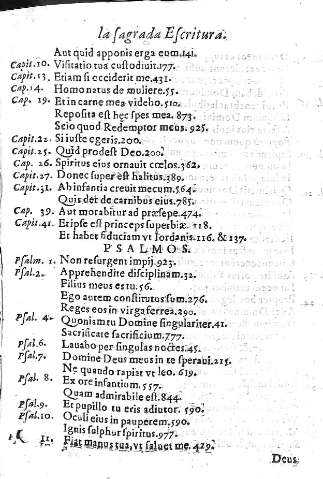 la ſagrada Eſcritura.
Aut quid apponis erga eum.141.
Capit.10. Viſitatio tua cuſtodiuit.177.
Capit.13. Etiam ſi occiderit me.431.
Cap. 14. Homo natus de muliere.55.
Cap. 19. Et in carne mea videbo.510.
Repoſita eſt hęc ſpes mea. 873.
Scio quod Redemptor meus. 925.
Capit.22. Si iuſte egeris.200.
Capit.25. Quid prodeſt Deo.200.
Cap. 26. Spiritus eius ornauit cœlos.362.
Capit.27. Donec ſupereſt halitus.389.
Capit.31. Ab infantia creuit mecum.564.
Quis det de carnibus eius.785.
Cap. 39. Aut morabitur ad præſepe.474.
Capit.41. Et ipſe eſt princeps ſuperbiæ. 118.
Et habet fiduciam vt Iordanis.116. & 137.
PSALMOS.
Pſalm. 1. Non reſurgent impij.923.
Pſal.2. Apprehendite diſciplinam.32.
Filius meus es tu.56.
Ego autem conſtitutus ſum.276.
Reges eos in virga ferrea.290.
Pſal. 4. Quoniam tu Domine ſingulariter.41.
Sacrificate ſacrificium.777.
Pſal.6. Lauabo per ſingulas noctes.45.
Pſal.7. Domine Deus meus in te ſperaui.215.
Ne quando rapiat vt leo.619.
Pſal. 8. Ex ore infantium.557.
Quam admirabile eſt.844.
Pſal.9. Et pupillo tu eris adiutor. 590.
Pſal.10. Oculi eius in pauperem.590.
Ignis ſulphur ſpiritus.977.
11. Fiat manus tua, vt ſaluet me.429.
Deus